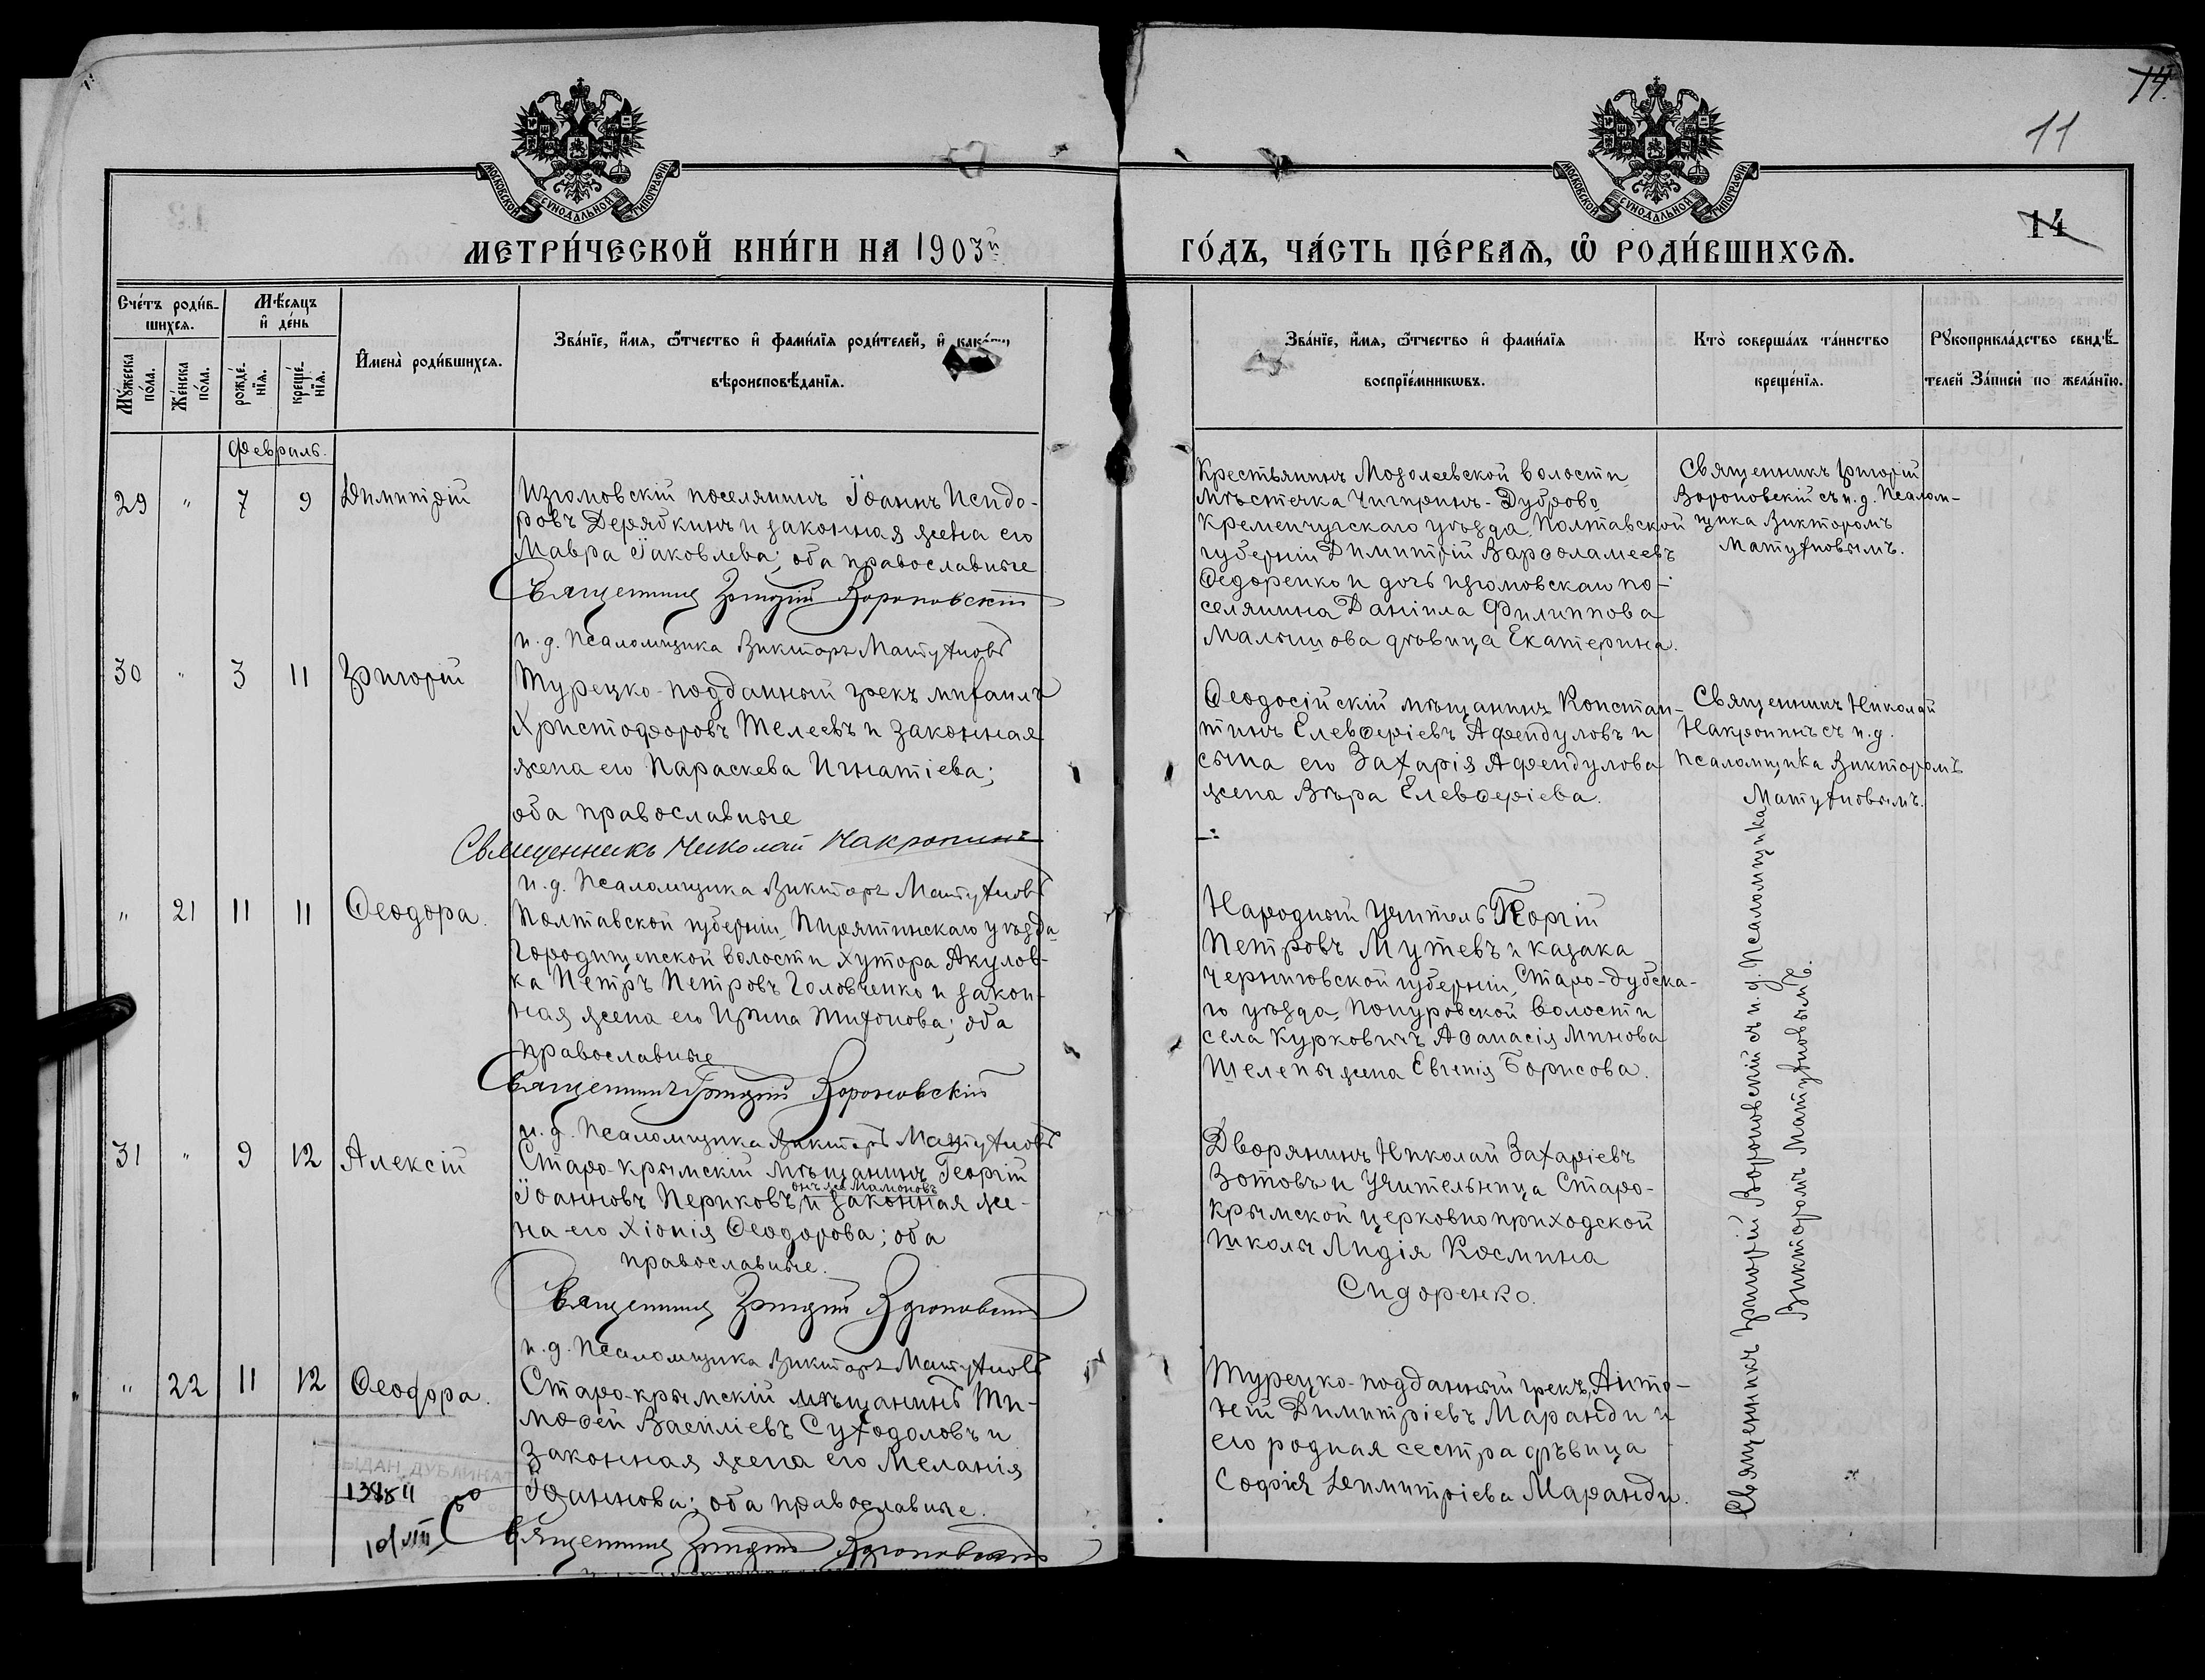 14.
11
14
МОСКОВСКОЙ СѴНОДАЛЬНОЙ ТИПОГРАФІИ
МОСКОВСКОЙ СѴНОДАЛЬНОЙ ТИПОГРАФІИ
МЕТРИ́ЧЕСКОЙ КНИ́ГИ НА 1903й
ГО́ДЪ, ЧА́СТЬ ПЕ́РВАѦ, Ѡ҆ РОДИ́ВШИХСѦ.
Сче́тъ роди́в-
шихсѧ.
Мѣ́сѧцъ
и҆ де́нь
Мꙋ́жеска
по́ла.
Же́нска
по́ла.
рожде́-
нїѧ.
креще́-
нїѧ.
И҆мена̀ роди́вшихсѧ.
Зва́нїе, и҆́мѧ, ѻ҆́тчество и҆ фами́лїѧ роди́телей, и҆ како́гѡ
вѣроисповѣ́данїѧ.
Зва́нїе, и҆́мѧ, ѻ҆́тчество и҆ фами́лїѧ
воспрїе́мникѡвъ.
Кто̀ соверша́лъ та́инство
креще́нїѧ.
Рꙋкоприкла́дство свидѣ́-
телей За́писи по жела́нїю.
Февраль.
29 " 7 9 Димитрій
Изюмовскій поселянинъ Іоаннъ Исидо-
ровъ Дерябкинъ и законная жена его
Мавра Іаковлева; оба православные
Священникъ Григорій Вороновскій
и. д. Псаломщика Викторъ Матухновъ
Крестьянинъ Мозолеевской волости
мѣстечка Чигиринъ-Дуброво
Кременчугскаго уѣзда, Полтавской
губерніи Димитрій Варѳоламеевъ
Ѳедоренко и дочь изюмовскаго по-
селянина Даніила Филиппова
Малышова дѣвица Екатерина.
Священникъ Григорій
Вороновскій съ и. д. Псалом-
щика Викторомъ
Матухновымъ.
30 " 3 11 Григорій
Турецко-подданный грекъ Михаилъ
Христофоровъ Телеевъ и законная
жена его Параскева Игнатіева;
оба православные
Священникъ Николай Накропинъ
и. д. Псаломщика Викторъ Матухновъ
Ѳеодосійскій мѣщанинъ Констан-
тинъ Елевѳеріевъ Афендуловъ и
сына его Захарія Афендулова
жена Вѣра Елевѳеріева.
Священникъ Николай
Накропинъ съ и. д.
псаломщика Викторомъ
Матухновымъ.
" 21 11 11 Ѳеодора.
Полтавской губерніи, Пирятинскаго уѣзда
Городищенской волости хутора Акулов-
ка Петръ Петровъ Головченко и закон-
ная жена его Ирина Тихонова; оба
православные
Священникъ Григорій Вороновскій
и. д. Псаломщика Викторъ Матухновъ
Народный учитель Георгій
Петровъ Мутевъ и казака
Черниговской губерніи, Старо-дубска-
го уѣзда, Понуровской волости
села Курковичъ Аѳанасія Минова
Шелепы жена Евгенія Борисова.
31 " 9 12 Алексій
Старо-крымскій мѣщанинъ Георгій
Іоанновъ Периковъ, онъ же Мамоновъ и законная же-
на его Хіонія Ѳеодорова; оба
православные.
Священникъ Григорій Вороновскій
и. д. Псаломщика Викторъ Матухновъ
Дворянинъ Николай Захаріевъ
Зотовъ и Учительница Старо-
крымской церковно приходской
школы Лидія Космина
Сидоренко.
" 22 11 12 Ѳеодора.
Старо-крымскій мѣщанинъ Ти-
моѳей Василіевъ Суходоловъ и
законная жена его Меланія
Іоаннова; оба православные.
Священникъ Григорій Вороновскій
Турецко-подданный грекъ, Анто-
ній Димитріевъ Маранди и
его родная сестра дѣвица
Софія Димитріева Маранди.
Священникъ Григорій Вороновскій съ и. д. Псаломщика
Викторомъ Матухновымъ.
ВЫДАН ДУБЛИКАТ